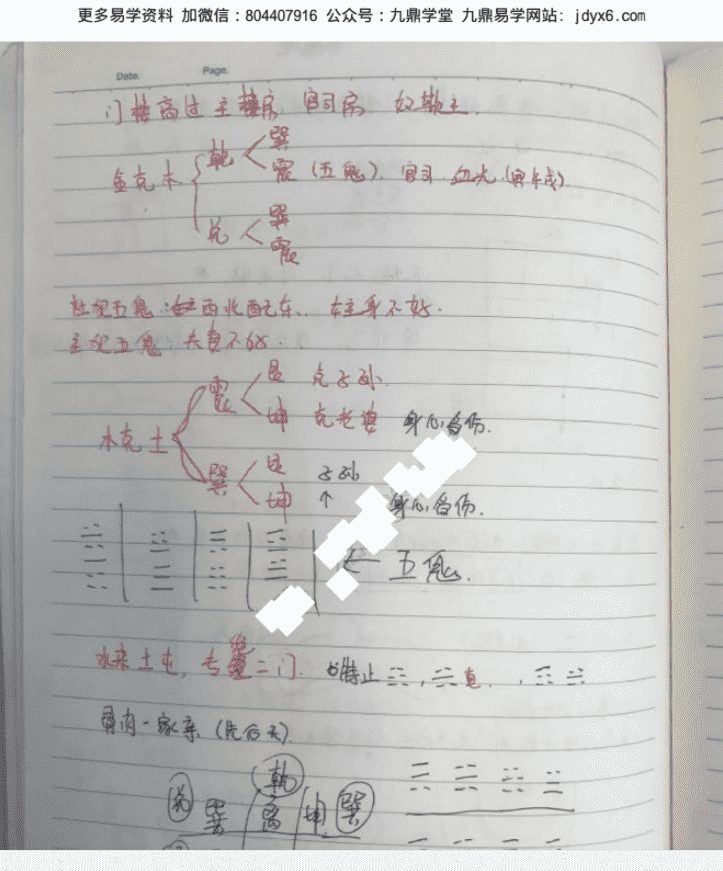 更多易学资料 加微信：804407916 公众号：九鼎学堂 九鼎易学网站：jdyx6.com
Date. Page.
门楼高过主楼房 官司房 奴欺主
金克木
乾 巽
震（五鬼）. 官司 血光
兑 巽
震
犯五鬼：西北配东. 主身不好.
主犯五鬼：夫妻不好.
木克土
震 艮 克子孙.
坤 克老婆 身心自伤.
巽 艮 子孙
坤 ↑ 身心自伤.
← 五鬼.
土, 专 二门. 特止 ☳, 鬼.
骨肉一家亲（先后天）
乾
兑 巽 离 坤 巽